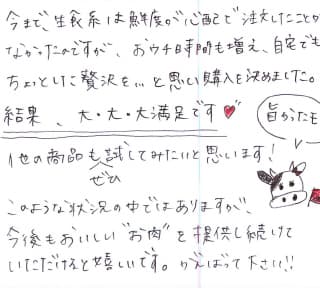 今まで、生食系は鮮度が心配で注文したことが
なかったのですが、おウチ時間も増え、自宅でも
ちょっとした贅沢を… と思い購入を決めました。
結果、大・大・大満足です♥
旨かったモ
他の商品も試してみたいと思います!
ぜひ
このような状況の中ではありますが、
今後もおいしい"お肉"を提供し続けて
いただけると嬉しいです。がんばって下さい!!